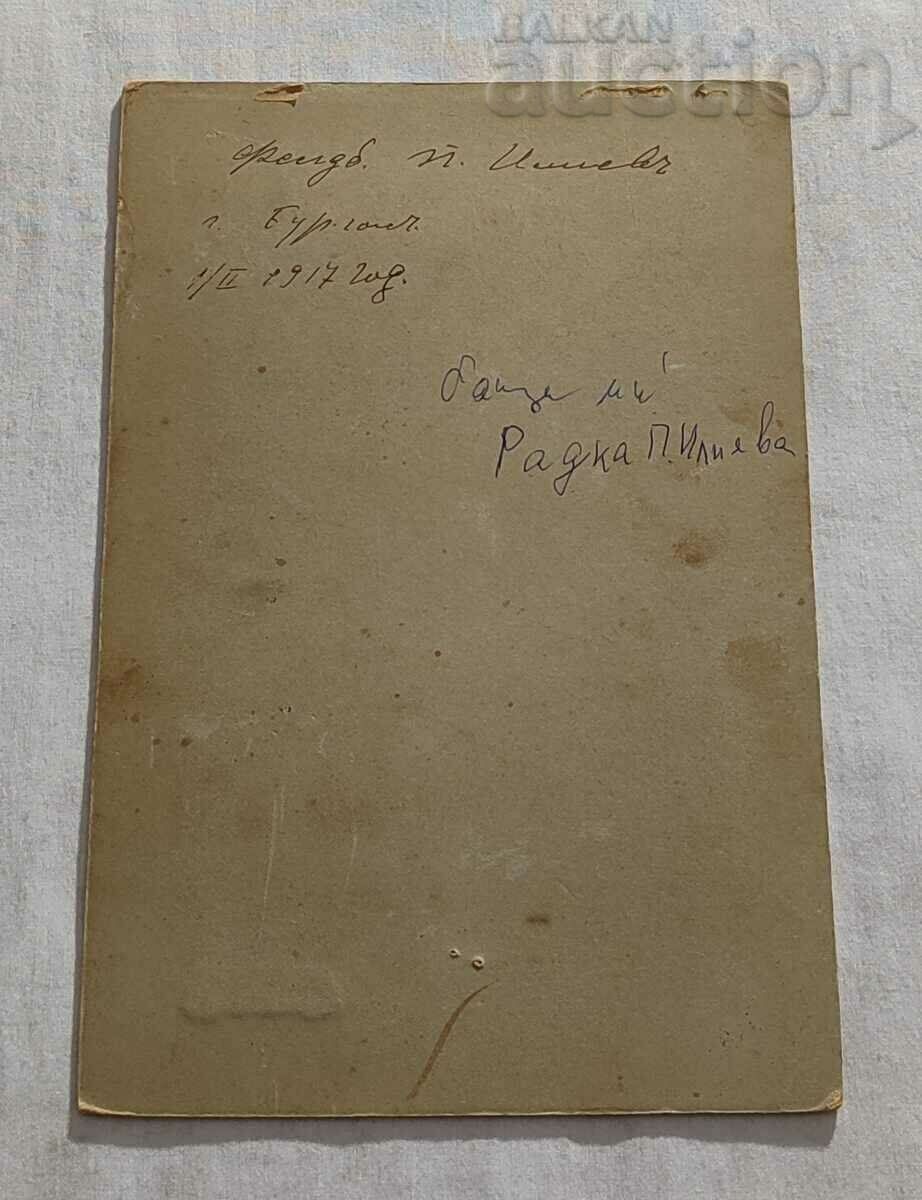 BALKAN
auction
Фелдв. П. Илиевъ
г. Бургасъ.
1/II 1917 год.
баща ми
Радка П. Илиева